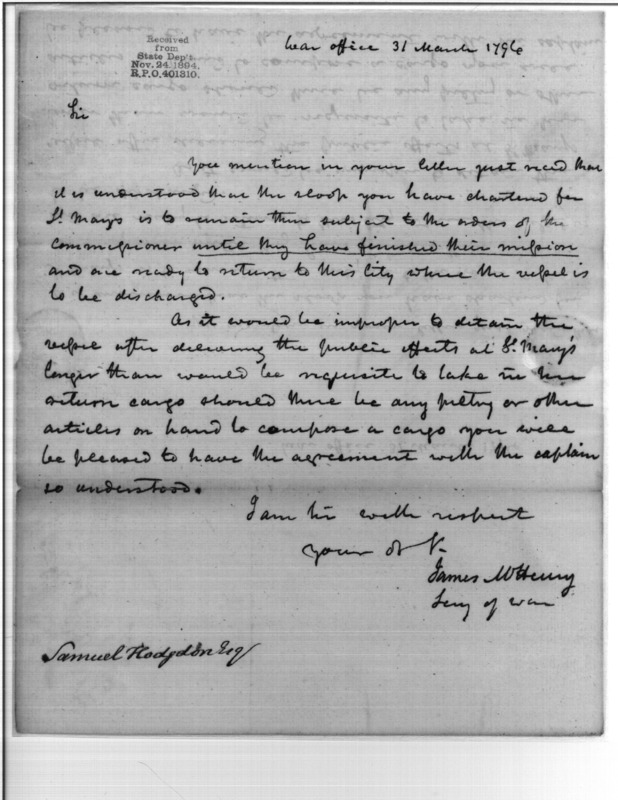 Received
from
State Dep't.
Nov. 24. 1894.
R.P.O. 401310.
War office 31 March 1796
Sir
You mention in your letter just reced that
it is understood that the sloop you have chartered for
St. Marys is to remain there subject to the orders of the
commissioner until they have finished their mission
and are ready to return to this City where the vessel is
to be discharged.
As it would be improper to detain the
vessel after delivering the public effects at St. Mary's
longer than would be requisite to take in her
return cargo should there be any peltry or other
articles on hand to compose a cargo you will
be pleased to have the agreement with the captain
so understood.
I am Sir with respect
your ob st.
James McHenry
Secy of war
Samuel Hodgdon Esq